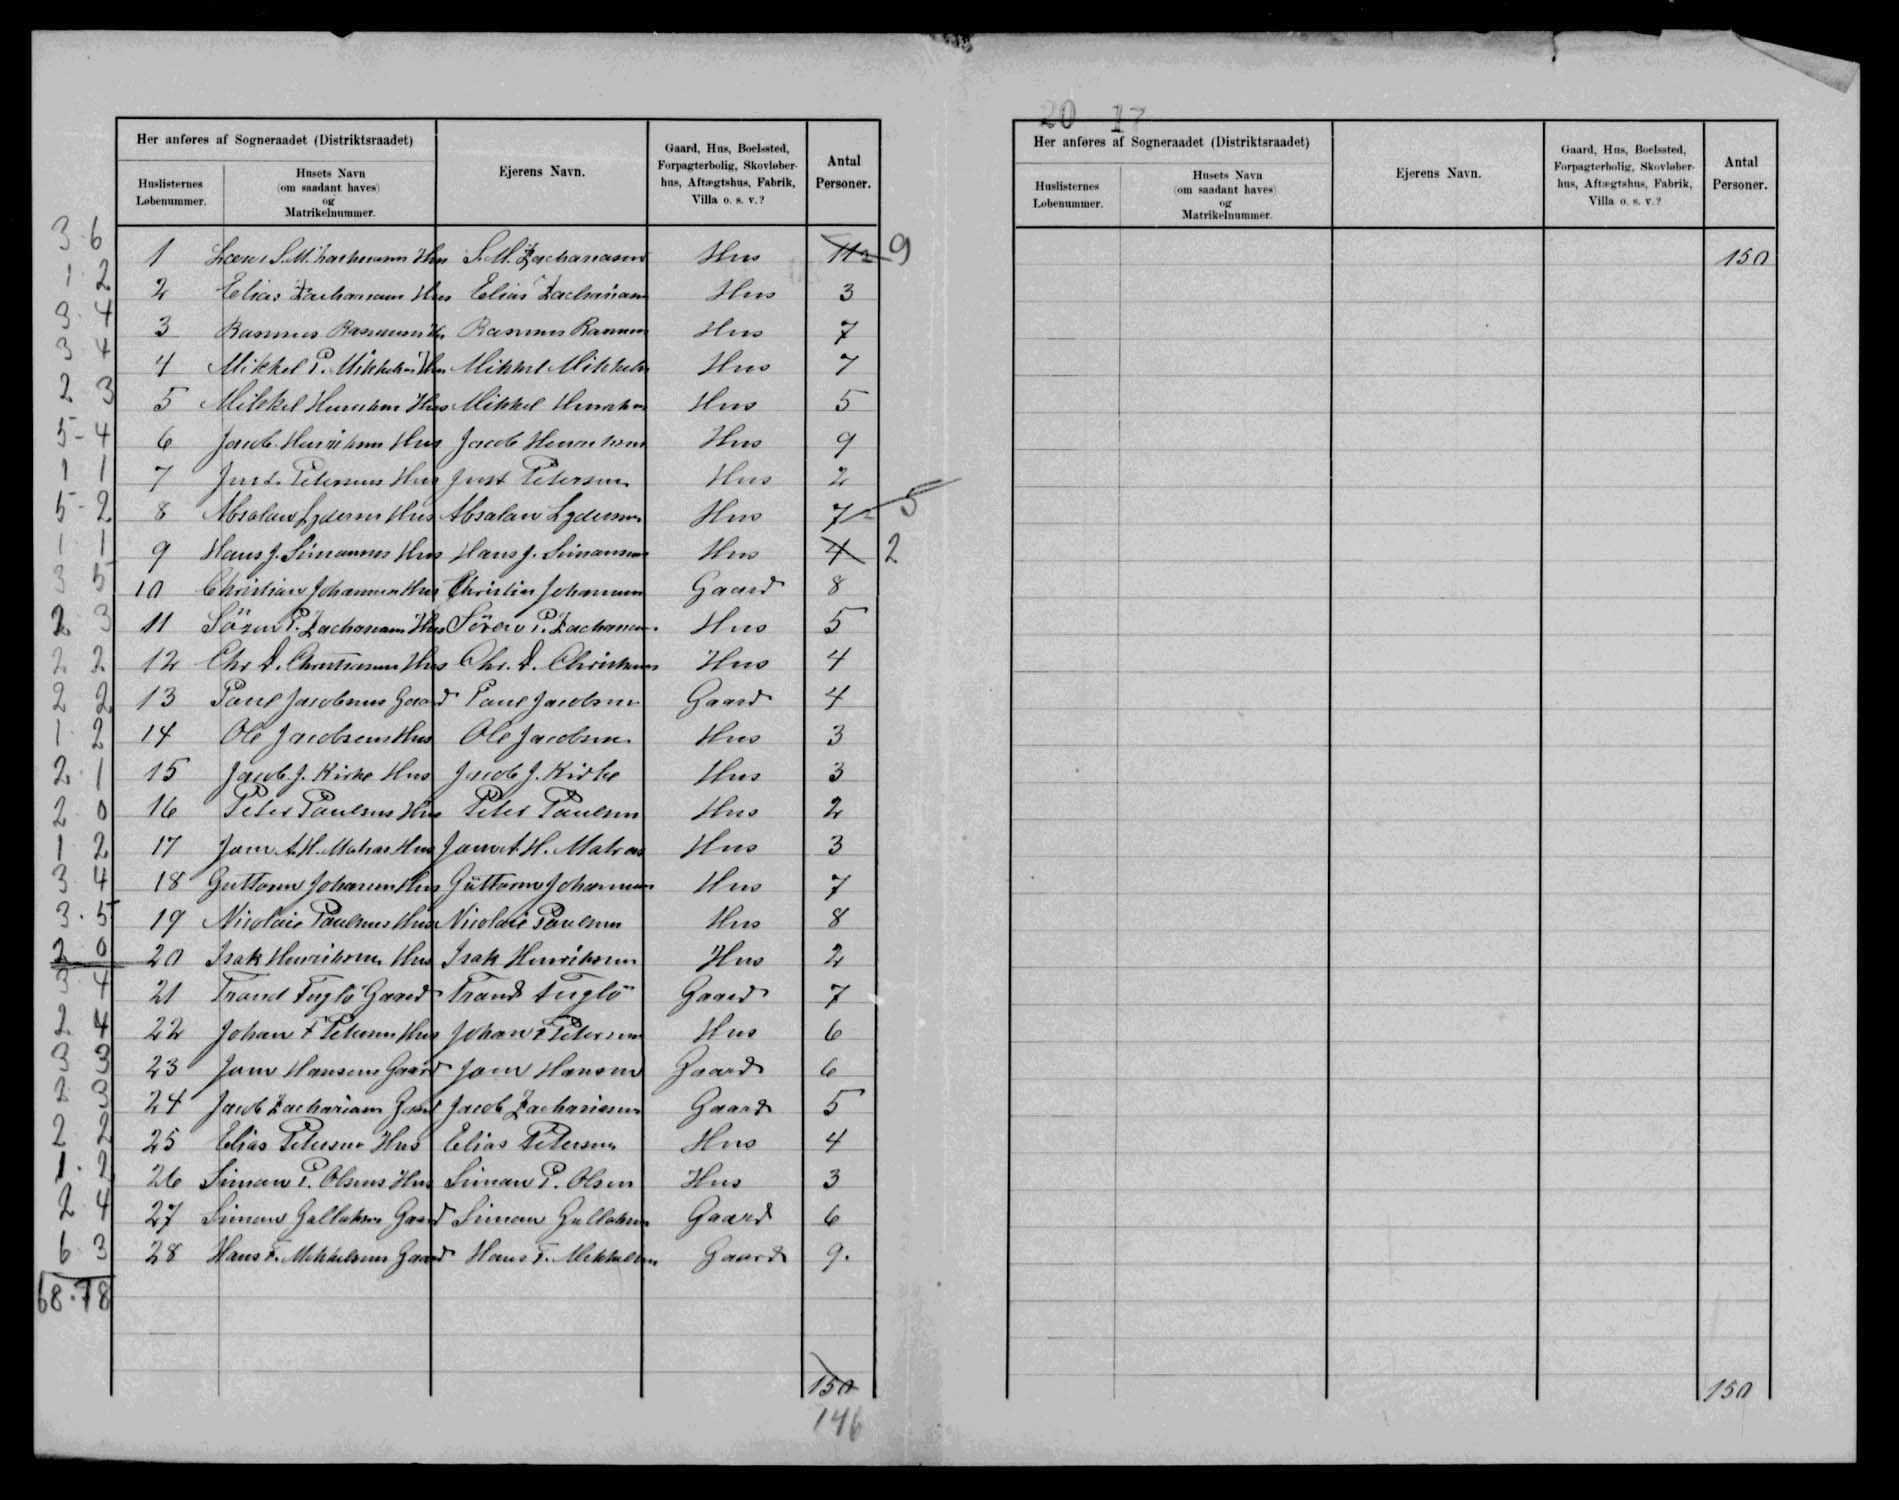 Her anføres af Sogneraadet (Distriktsraadet)
Huslisternes Løbenummer.
Husets Navn (om saadant haves) og Matrikelnummer.
Ejerens Navn.
Gaard, Hus, Boelssted, Forpagterbolig, Skovløberhus, Aftægtshus, Fabrik, Villa o. s. v.?
Antal Personer.
3 6 1 S. M. Zachariasens Hus S. M. Zachariasen Hus 11 9
1 2 2 Elias Zachariasens Hus Elias Zachariasen Hus 3
3 4 3 Rasmus Rasmussens Hus Rasmus Rasmussen Hus 7
3 4 4 Mikkel P. Mikkelsens Hus Mikkel Mikkelsen Hus 7
2 3 5 Mikkel Henriksens Hus Mikkel Henriksen Hus 5
5-4 6 Jacob Henriksens Hus Jacob Henriksen Hus 9
1 1 7 Just Petersens Hus Just Petersen Hus 2
5-2 8 Absalon Lydersens Hus Absalon Lydersen Hus 7 5
1 1 9 Hans J. Simonsens Hus Hans J. Simonsen Hus 4 2
3 5 10 Christian Johannesens Hus Christian Johannesen Gaard 8
2 3 11 Sören P. Zachariasens Hus Sören P. Zachariasen Hus 5
2 2 12 Chr. D. Christiansens Hus Chr. D. Christiansen Hus 4
2 2 13 Poul Jacobsens Gaard Poul Jacobsen Gaard 4
1 2 14 Ole Jacobsens Hus Ole Jacobsen Hus 3
2 1 15 Jacob J. Kirke Hus Jacob J. Kirke Hus 3
2 0 16 Peter Paulsens Hus Peter Paulsen Hus 2
1 2 17 H. Matras Hus H. Matras Hus 3
3 4 18 Guttorm Johannesens Hus Guttorm Johannesen Hus 7
3 5 19 Nicolaie Paulsens Hus Nicolaie Paulsen Hus 8
2 0 20 Isak Henriksens Hus Isak Henriksen Hus 2
3 4 21 Trond Fuglö Gaard Trond Fuglö Gaard 7
2 4 22 Johan F Petersens Hus Johan F Petersen Hus 6
3 3 23 Hansens Gaard Hansen Gaard 6
2 3 24 Jacob Zachariasens Gaard Jacob Zachariasen Gaard 5
2 2 25 Elias Petersens Hus Elias Petersen Hus 4
1 2 26 Simon P. Olsens Hus Simon P. Olsen Hus 3
2 4 27 Simon Gaard Simon Gaard 6
6 3 28 Hans F. Mikkelsens Gaard Hans F. Mikkelsen Gaard 9.
68.78
150
146
20 17
Her anføres af Sogneraadet (Distriktsraadet)
Huslisternes Løbenummer.
Husets Navn (om saadant haves) og Matrikelnummer.
Ejerens Navn.
Gaard, Hus, Boelssted, Forpagterbolig, Skovløberhus, Aftægtshus, Fabrik, Villa o. s. v.?
Antal Personer.
150
150